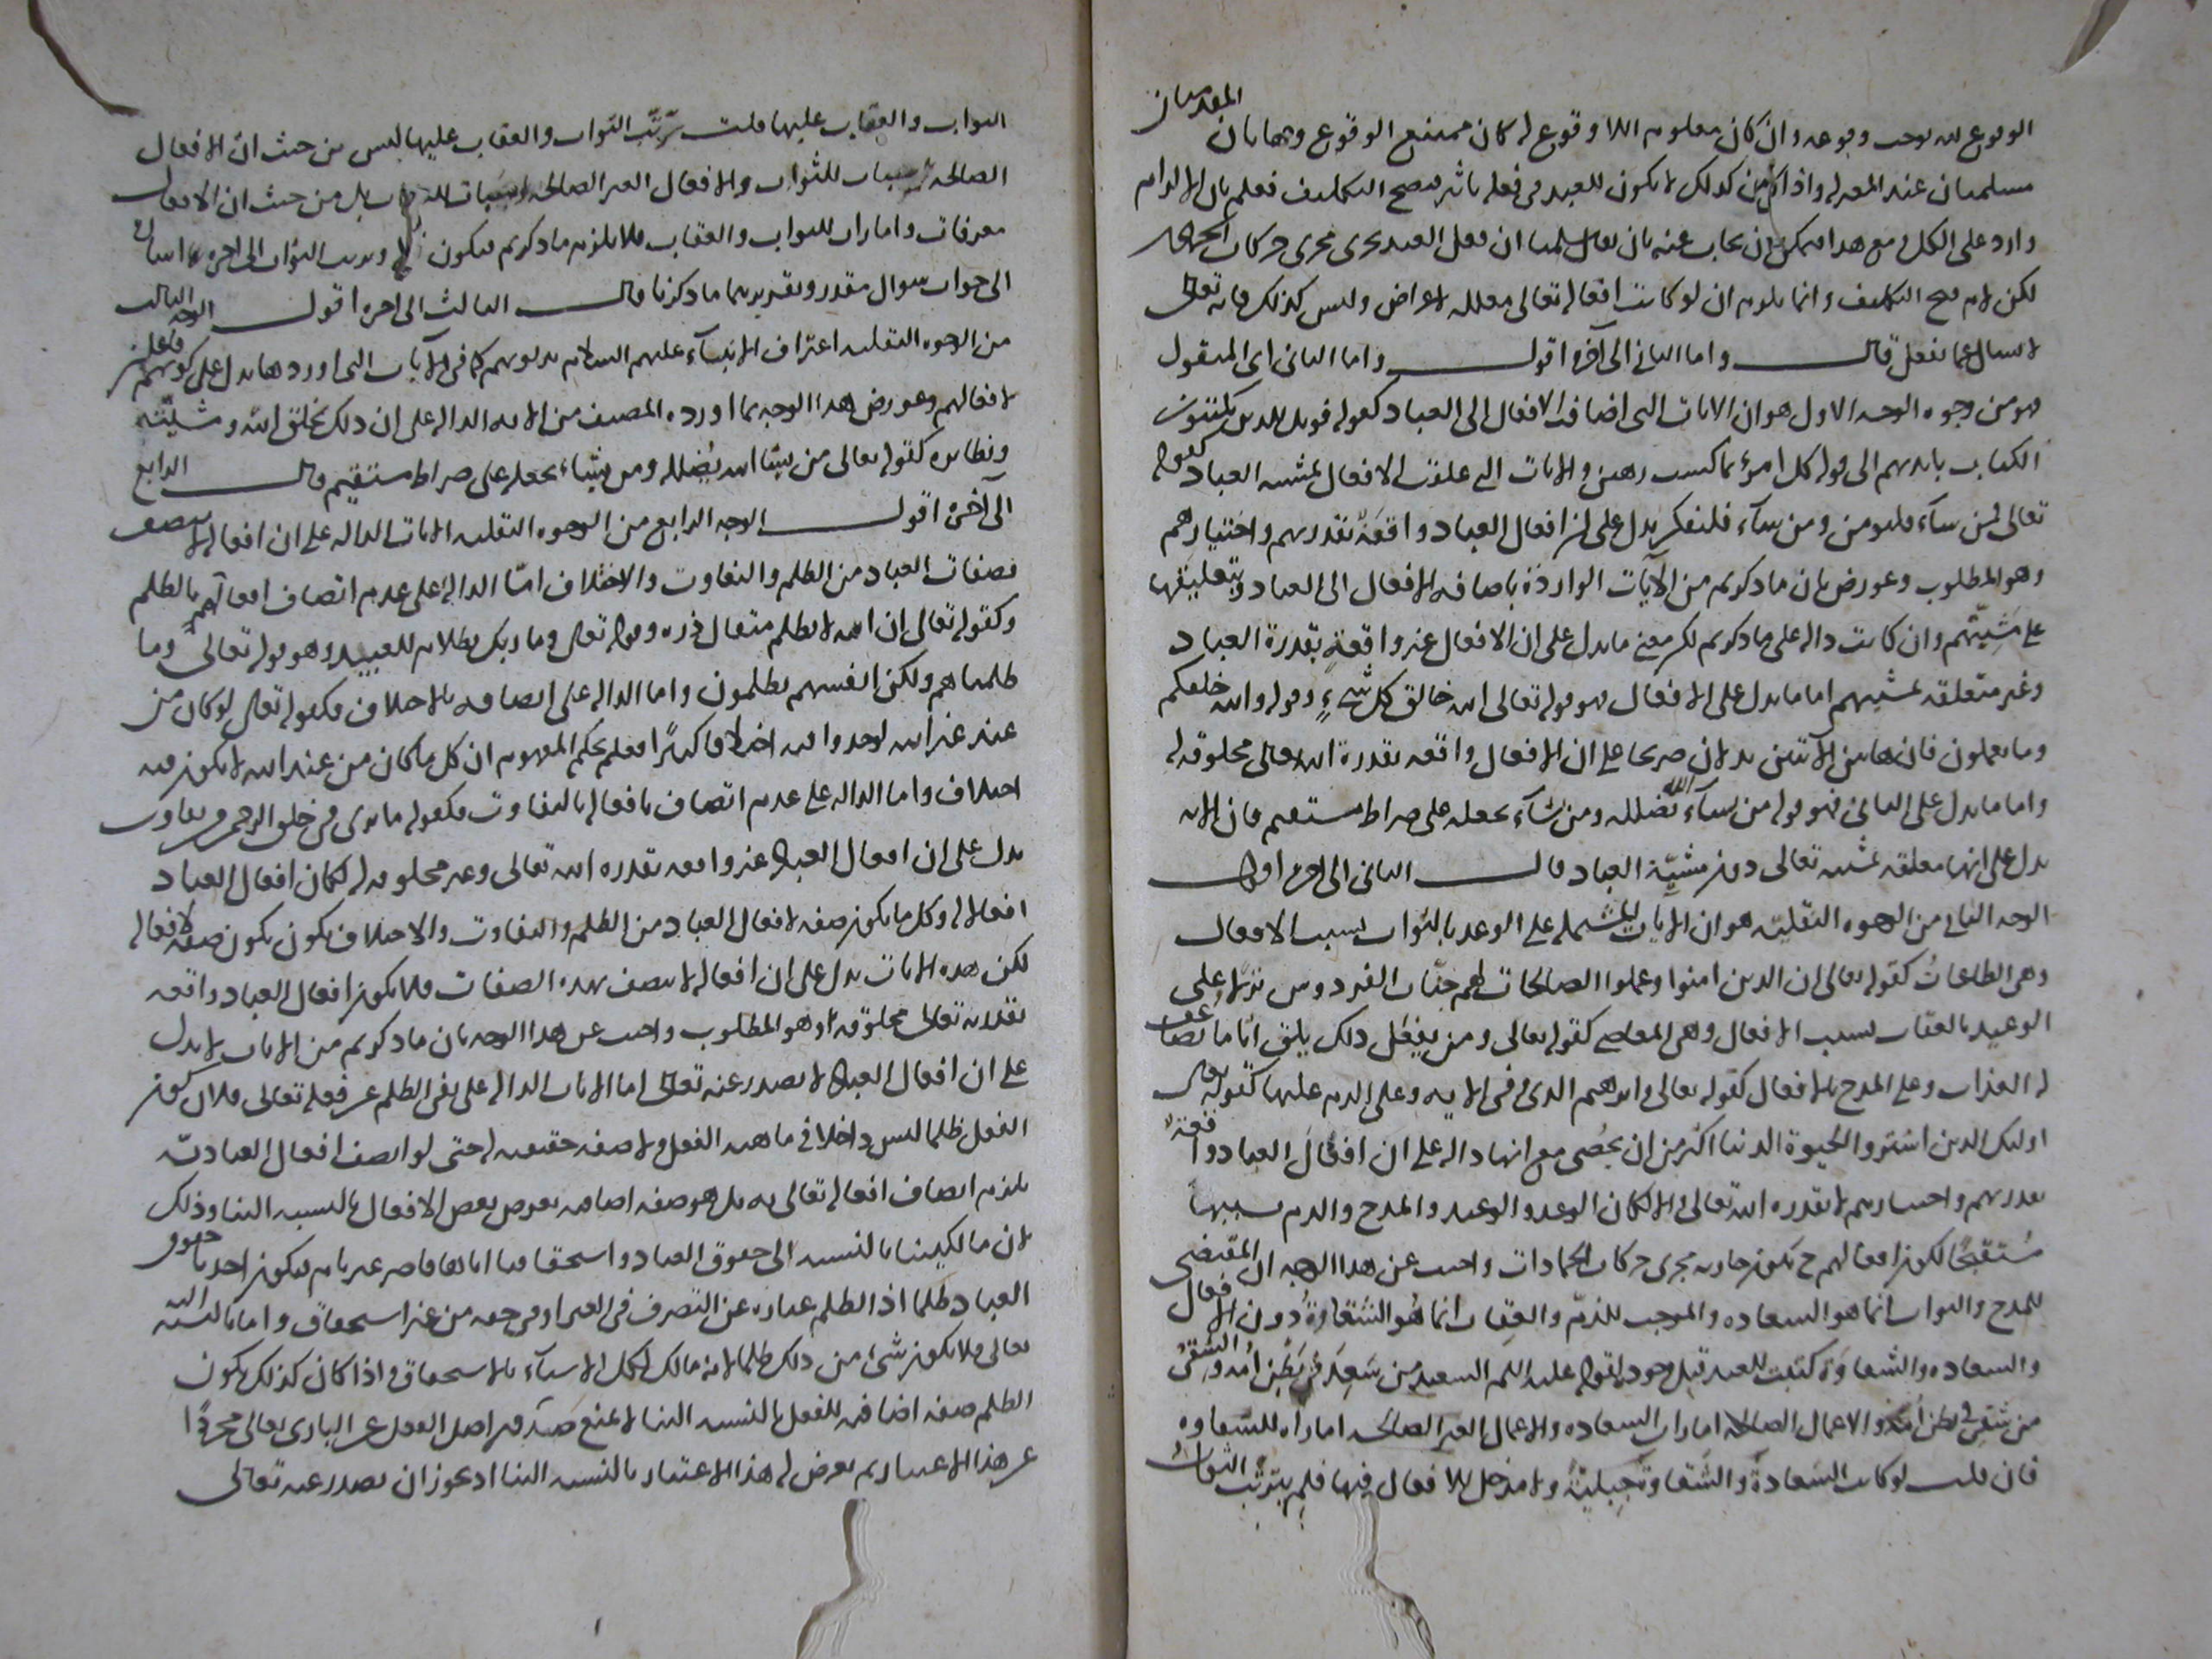 الوقوع لله لوجب وقوعه وان كان معلوم اللا وقوع له كان ممتنع الوقوع وهاتان المقدمتان
مسلمتان عند المعتزلة واذا كان كذلك لا يكون للعبد في فعله تاثير فيصح التكليف فعلم بان الالزام
وارد على الكل ومع هذا فيمكن ان يجاب عنه بان يقال سلمنا ان فعل العبد يجرى مجرى حركات الجماد
لكن لا يصح التكليف وانما يلزم ان لو كانت افعاله تعالى معللة بالاغراض وليس كذلك فانه تعالى
لا يسال عما يفعل قال واما الثاني الى آخره اقول واما الثاني اى المنقول
فهو من وجوه الوجه الاول هو ان الايات التى اضاف الافعال الى العباد كقوله فويل للذين يكتبون
الكتاب بايديهم الى قوله كل امرئ بما كسب رهين والايات التى علقت الافعال بمشية العباد كقوله
تعالى فمن شاء فليومن ومن شاء فليكفر يدل على ان افعال العباد واقعة بقدرتهم واختيارهم
وهو المطلوب وعورض بان ما ذكرتم من الآيات الواردة باضافة الافعال الى العباد وبتعليقها
على مشيتهم وان كانت دالة على ما ذكرتم لكن معنا ما يدل على ان الافعال غير واقعة بقدرة العباد
وغير متعلقة بمشيتهم اما ما يدل على الافعال فهو قوله تعالى الله خالق كل شيء وقوله والله خلقكم
وما تعملون فان هاتين الآيتين يدلان صريحا على ان الافعال واقعة بقدرة الله تعالى مخلوقة له
واما ما يدل على الثاني فهو قوله من يشاء الله يضلله ومن يشاء يجعله على صراط مستقيم فان الآية
يدل على انها معلقة بمشية تعالى دون مشيّة العباد قال الثاني الى آخره اقول
الوجه الثاني من الوجوه النقلية هو ان الآيات المشتملة على الوعد بالثواب بسبب الافعال
وهي الطاعات كقوله تعالى ان الذين امنوا وعملوا الصالحات لهم جنّات الفردوس نزلا وعلى
الوعيد بالعقاب بسبب الافعال وهي المعاصي كقوله تعالى ومن يفعل ذلك يلق اثاما يضاعف
له العذاب وعلى المدح بالافعال كقوله تعالى وابراهيم الذى وفى الاية وعلى الذم عليها كقوله تعالى
اوليك الذين اشتروا الحيوة الدنيا اكثر من ان يحصى مع انها دالة على ان افعال العباد واقعة
بقدرتهم واختيارهم لا بقدرة الله تعالى والا لكان الوعد والوعيد والمدح والذم بسببها
مستقبحًا لكون افعالهم ح يكون جارية مجرى حركات الجمادات واجيب عن هذا الوجه ان المقتضى
للمدح والثواب انما هو السعادة والموجب للذمّ والعقاب انما هو الشقاوة دون الافعال
والسعادة والشقاوة كتبت للعبد قبل وجوده لقوله عليه السلم السعيد من سَعِدَ في بطن أمه والشقى
من شقى في بطن أمه والاعمال الصالحة امارات السعادة والاعمال الغير الصالحة امارات للشقاوة
فان قلت لو كانت السعادة والشقاوة جبلّية ولا مدخل للافعال فيها فلم يترتب الثواب
الثواب والعقاب عليها قلت ترّتب الثواب والعقاب عليها ليس من حيث ان الافعال
الصالحة سببات للثواب والافعال الغير الصالحة سببات للعقاب بل من حيث ان الافعال
معرفات وامارات للثواب والعقاب فلا يلزم ما ذكرتم فيكون وترتب الثواب الى آخره اشارة
الى جواب سوال مقدر وتقديرهما ما ذكرنا قال الثالث الى آخره اقول الوجه الثالث
من الوجوه النقلية اعتراف الانبياء عليهم السلام بذنوبهم كما في الآيات التى اوردها يدل على كونهم فاعلين
لافعالهم وعورض هذا الوجه بما اورده المصنف من الاية الدالة على ان ذلك بخلق الله ومشيّته
ونظائره كقوله تعالى من يشا الله يضلله ومن يشاء يجعله على صراط مستقيم قال الرابع
الى آخره اقول الوجه الرابع من الوجوه النقلية الايات الدالة على ان افعاله لا يتصف
بصفات العباد من الظلم والتفاوت والاختلاف امّا الدالة على عدم اتصاف افعالهم بالظلم
وكقوله تعالى ان الله لا يظلم مثقال ذرة وقوله تعالى وما ربك بظلام للعبيد وهو قوله تعالى وما
ظلمناهم ولكن انفسهم يظلمون واما الدالة على اتصافه بالاختلاف فكقوله تعالى لو كان من
عند غير الله لوجدوا فيه اختلافا كثيرًا فعلم بحكم المفهوم ان كل ما كان من عند الله لا يكون فيه
اختلاف واما الدالة على عدم اتصاف بافعاله بالتفاوت فكقوله ما ترى في خلق الرحمن من تفاوت
يدل على ان افعال العباد غير واقعة بقدرة الله تعالى وغير مخلوقة له لكان افعال العباد
افعاله وكل ما يكون صفة لافعال العباد من الظلم والتفاوت والاختلاف يكون يكون صفة لافعاله
لكن هذه الايات يدل على ان افعاله لا يتصف بهذه الصفات فلا يكون افعال العباد واقعة
بقدرته تعالى مخلوقة له وهو المطلوب واجيب عن هذا الوجه بان ما ذكرتم من الايات لا يدل
على ان افعال العباد لا يصدر عنه تعالى اما الايات الدالة على نفى الظلم عن فعله تعالى فلان كون
الفعل ظلما ليس داخلا في ماهية الفعل ولا صفة حقيقية له حتى لو اتصف افعال العباد به
يلزم اتصاف افعاله تعالى به بل هو صفة اضافية يعرض بعض الافعال بالنسبة الينا وذلك
لان مالكيتنا بالنسبة الى حقوق العباد واستحقاقنا اياها قاصر غير تام فيكون اخذنا حقوق
العباد ظلما اذ الظلم عبارة عن التصرف في الغير او في حقه من غير استحقاق واما بالنسبة اليه
تعالى فلا يكون شئ من ذلك ظلما لانه مالك لكل الاشياء بالاستحقاق واذا كان كذلك يكون
الظلم صفة اضافية للفعل بالنسبة الينا لا يمنع صدور اصل الفعل عن البارى تعالى مجردًا
عن هذا الاعتبار ثم يعرض له هذا الاعتبار بالنسبة الينا اذ يجوز ان يصدر عنه تعالى